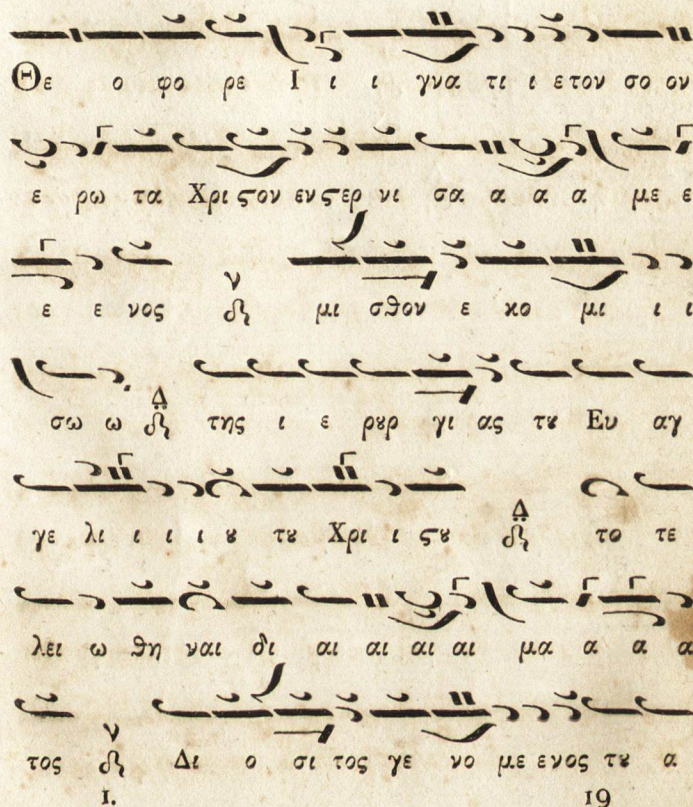 Θε ο φο ρε Ι ι ι γνα τι ι ετον σο ον
ε ρω τα Χρι ϛον ενϛερ νι σα α α α με ε
ε ε νος ν μι σθον ε κο μι ι ι
σω ω Δ της ι ε ρȣρ γι ας τȣ Ευ αγ
γε λι ι ι ι ȣ τȣ Χρι ι ϛȣ Δ το τε
λει ω θη ναι δι αι αι αι αι μα α α α
τος ν Δι ο σι τος γε νο με ενος τȣ α
1. 19